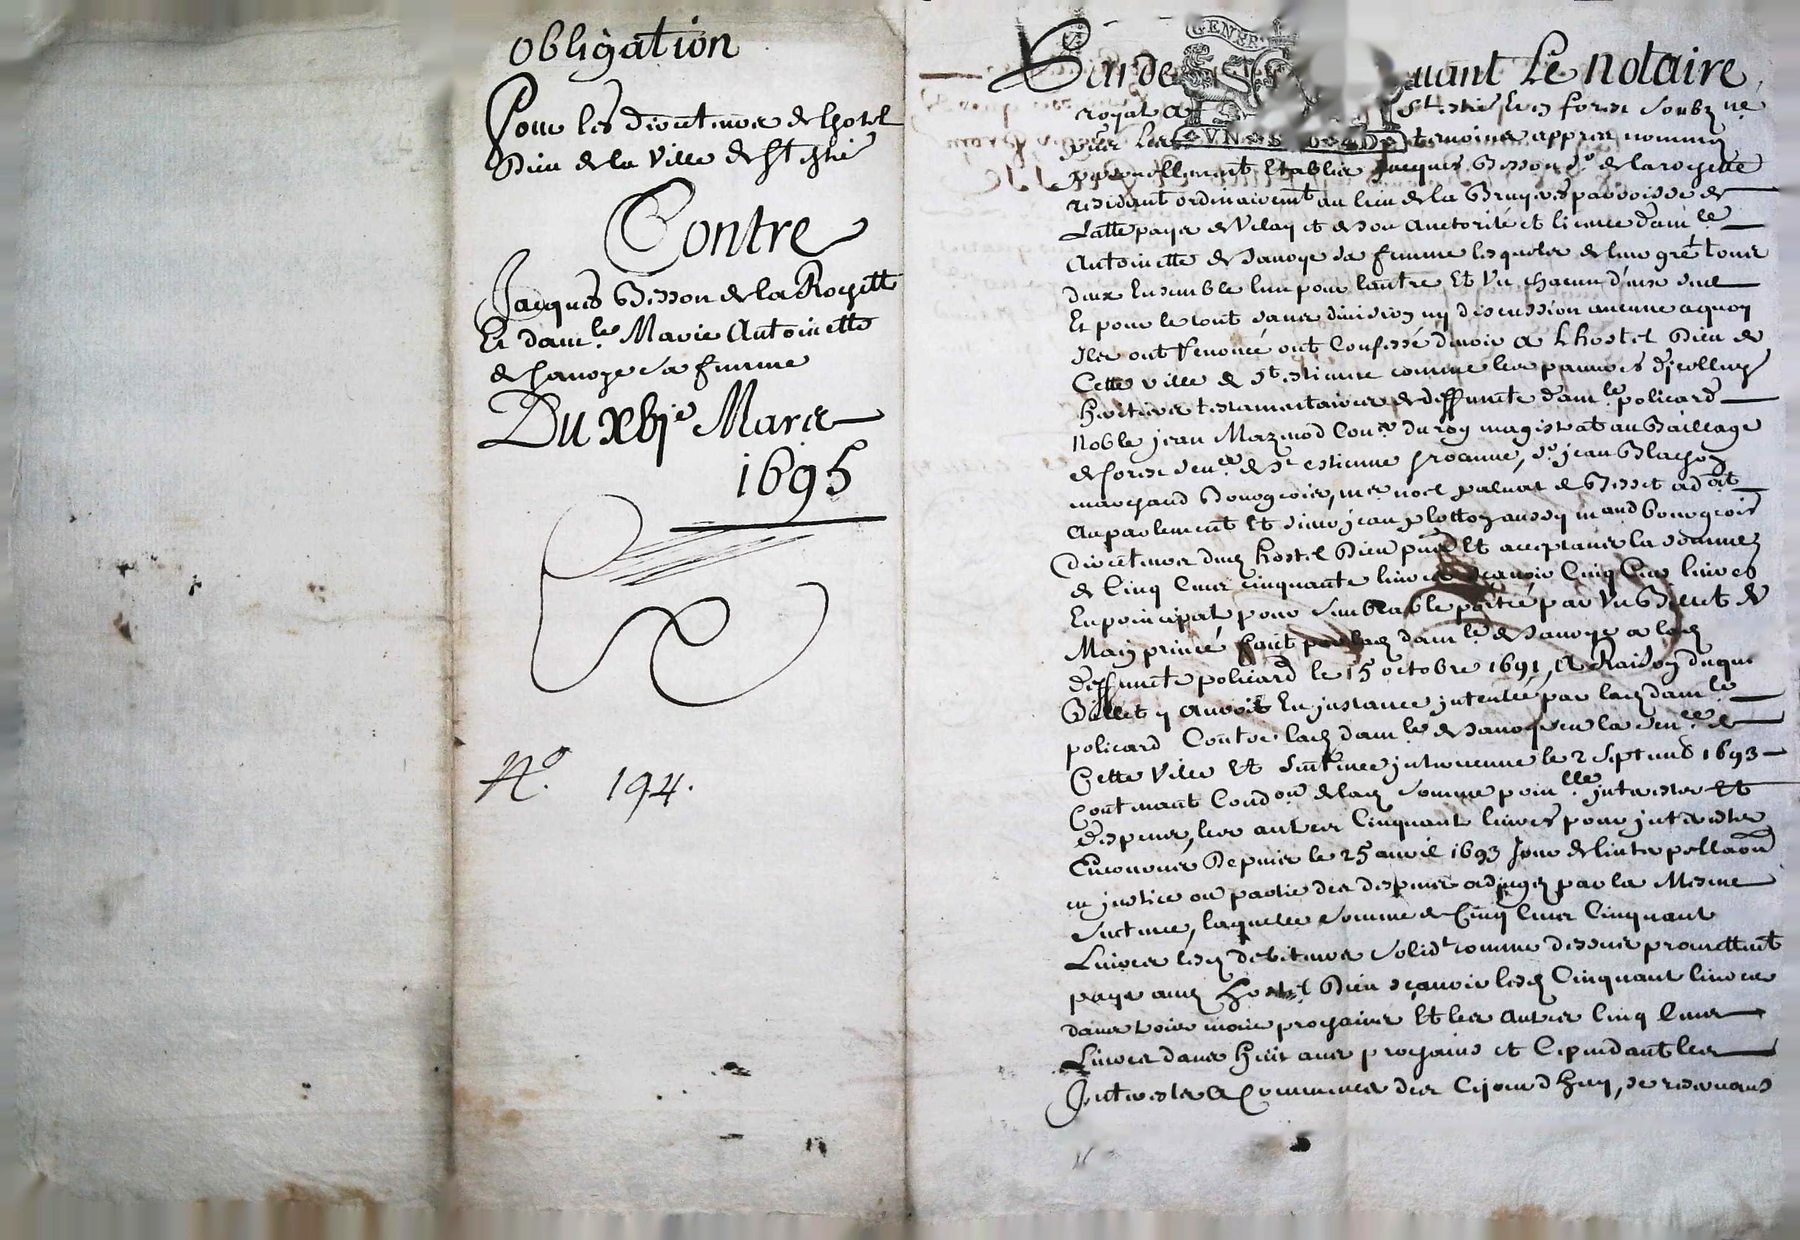 Obligation
Pour les directeurs de lhostel
Dieu de la Ville de St estie
Contre
Jacques Besson de la Rochette
Et dam.le Marie Antoinette
de Sanoye sa femme
Du xbje Mars
1695
N.o 194.
Par de uant Le notaire
GENER
VN S D
royal a St estie En forest soubz.ne
temoins apprez nommez
personellement Establis Jacques Besson Sr de la rochette
residant ordinairemt au lieu de la Bruyere parroisse de
pays de Velay et de son Auctorité et licence dam.le
Antoinette de Sanoye sa femme lesquels de leur gré tous
deux Ensemble lun pour lautre Et Vn chacun d'eux seul
Et pour le tout sans division ny discussion aucune a quoy
Ils ont renoncé ont Confessé devoir a Lhostel Dieu de
Cette Ville de St estienne comme les pauvres d'icelluy
heritiers testamentaires de deffuncte dam.le policard
Noble jean Con.er du roy magistrat au Baillage
de forest sen.ée de St estienne Sr jean Blachon
marchand Bourgeois, noel de Bisset ad.at
Au parlement Et Sieur jean aussy m.and bourgeois
directeurs dud hostel Dieu pnts Et acceptants la somme
de Cinq Cens cinquante livres sçavoir Cinq Cens livres
En principal pour semblable portée par Vn Billet de
Main privée fait par lad dam.le de Sanoye a lad
deffuncte policard le 15 octobre 1691, A Raison duquel
Billet y Auroit Eu jnstance jntentée par lad dam.le
policard Contre lad dam.le de Sanoye en la sen.ée de
Cette Ville Et Sentence jntervenue le 2 Septemb 1693
Contenant Cond.on de lad somme prin.lle jnterests Et
despens, les autres Cinquante livres pour jnterests
Encourus Depuis le 25 avril 1693 Jour de linterpellaon
en justice ou partie des despens adjugez par la Mesme
Sentence, laquelle somme de Cinq Cens Cinquante
Livres lesd debiteurs solid.t comme dessus promettent
payer aud Hostel Dieu sçavoir lesd Cinquante livres
dans trois mois prochains Et les Autres Cinq Cens
Livres dans huit ans prochains et Cependant les
Jnterests A Commencer des Cejourdhuy, se reservans